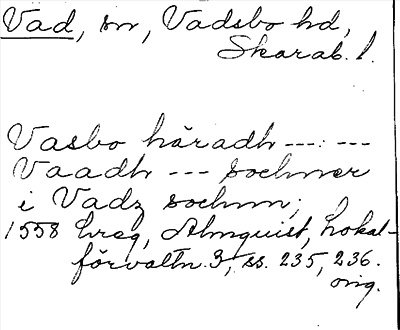 Vad, sn, Vadsbo hd,
Skarab. l.
Vasbo häradh ---: ---
Vaadh --- sochner
i Vadz sochnn;
1558 hreg, Almquist, Lokal-
förvaltn. 3, ss. 235, 236.
orig.